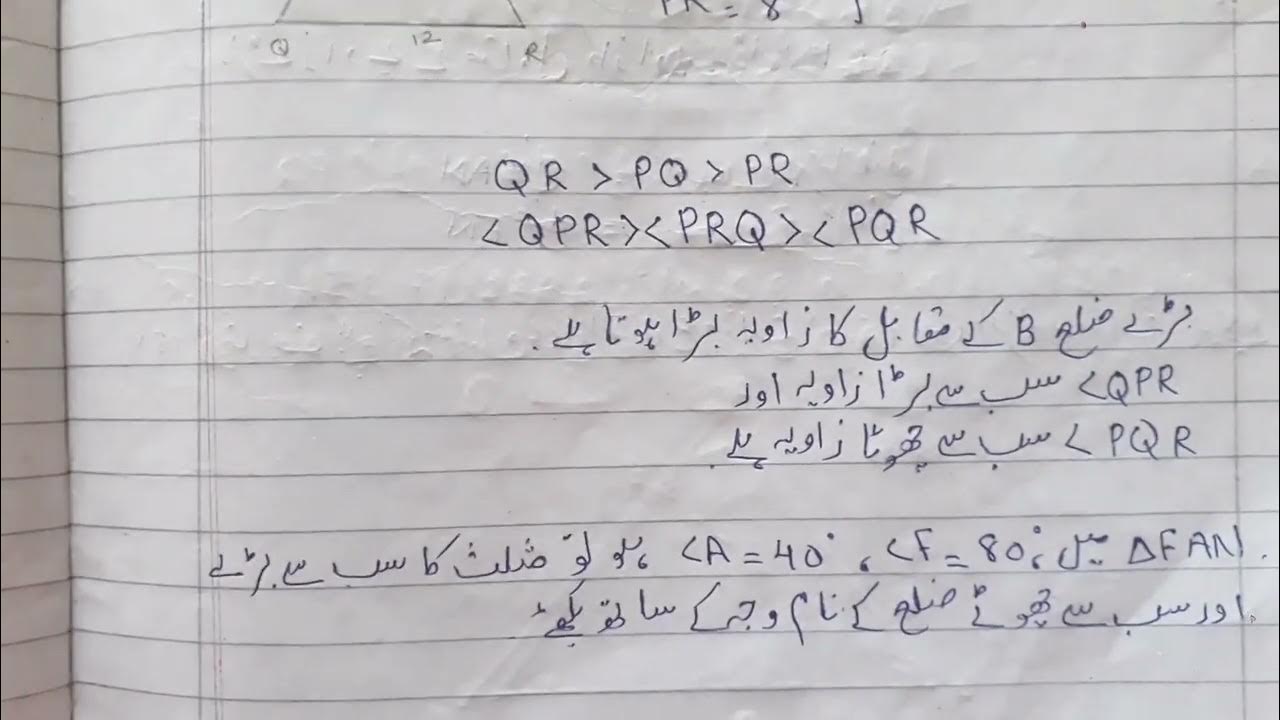 PR = 8
Q 12 R
QR > PQ > PR
<QPR > <PRQ > <PQR
بڑے ضلع B کے مقابل کا زاویہ بڑا ہوتا ہے.
<QPR سب سے بڑا زاویہ اور
<PQR سب سے چھوٹا زاویہ ہے.
1. ΔFAN میں، <F = 80°، <A = 40° ہو تو مثلث کا سب سے بڑے
اور سب سے چھوٹے ضلع کے نام وجہ کے ساتھ لکھئے